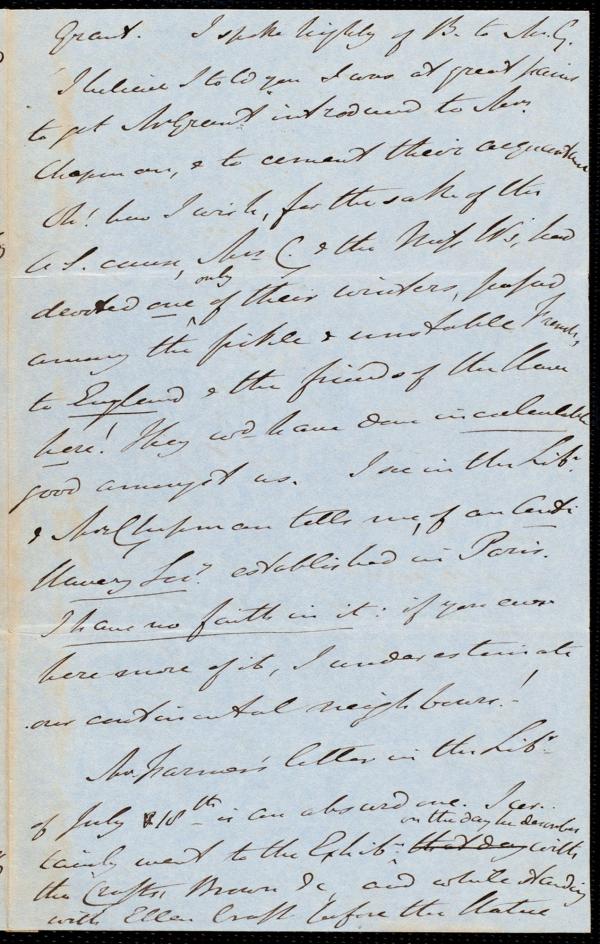 Grant. I spoke highly of B. to Mr. G.
I believe I told you I was at great pains
to get Mr Grant introduced to Mrs.
Chapman, & to cement their acquaintance
Oh! how I wish, for the sake of the
A. S. cause, Mrs C. & the Miss Ws, had
only
devoted one of their winters, passed
among the fickle & unstable French,
to England & the friends of the slave
here! They wd have done incalculable
good amongst us. I see in the Libr.
& Mrs Chapman tells me, of an Anti
Slavery Socy. established in Paris.
I have no faith in it: if you ever
hear more of it, I underestimate
our continental neighbours!
Mr. Farmer's letter in the Libr.
of July 18th is an absurd one. I cer-
on the day he describes
tainly went to the Exhibn that day with
the Crafts, Brown &c, and while standing
with Ellen Craft before the Statue